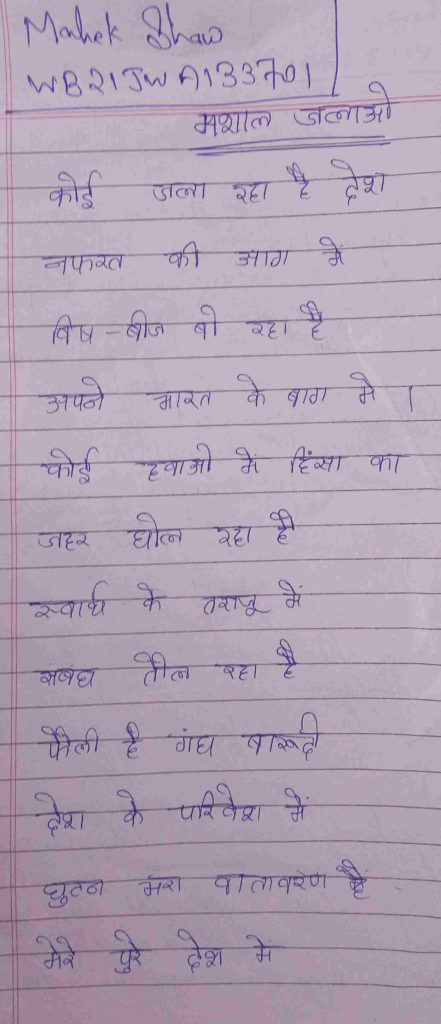 Mahek Shaw
WB21JWA133701
मशाल जलाओ
कोई जला रहा है देश
नफरत की आग में
विष-बीज बो रहा है
अपने भारत के बाग मे ।
कोई हवाओ में हिंसा का
जहर घोल रहा है
स्वार्थ के तराजू में
संबंध तौल रहा है
फैली है गंध बारूदी
देश के परिवेश में
घुटन भरा वातावरण है
मेरे पुरे देश मे